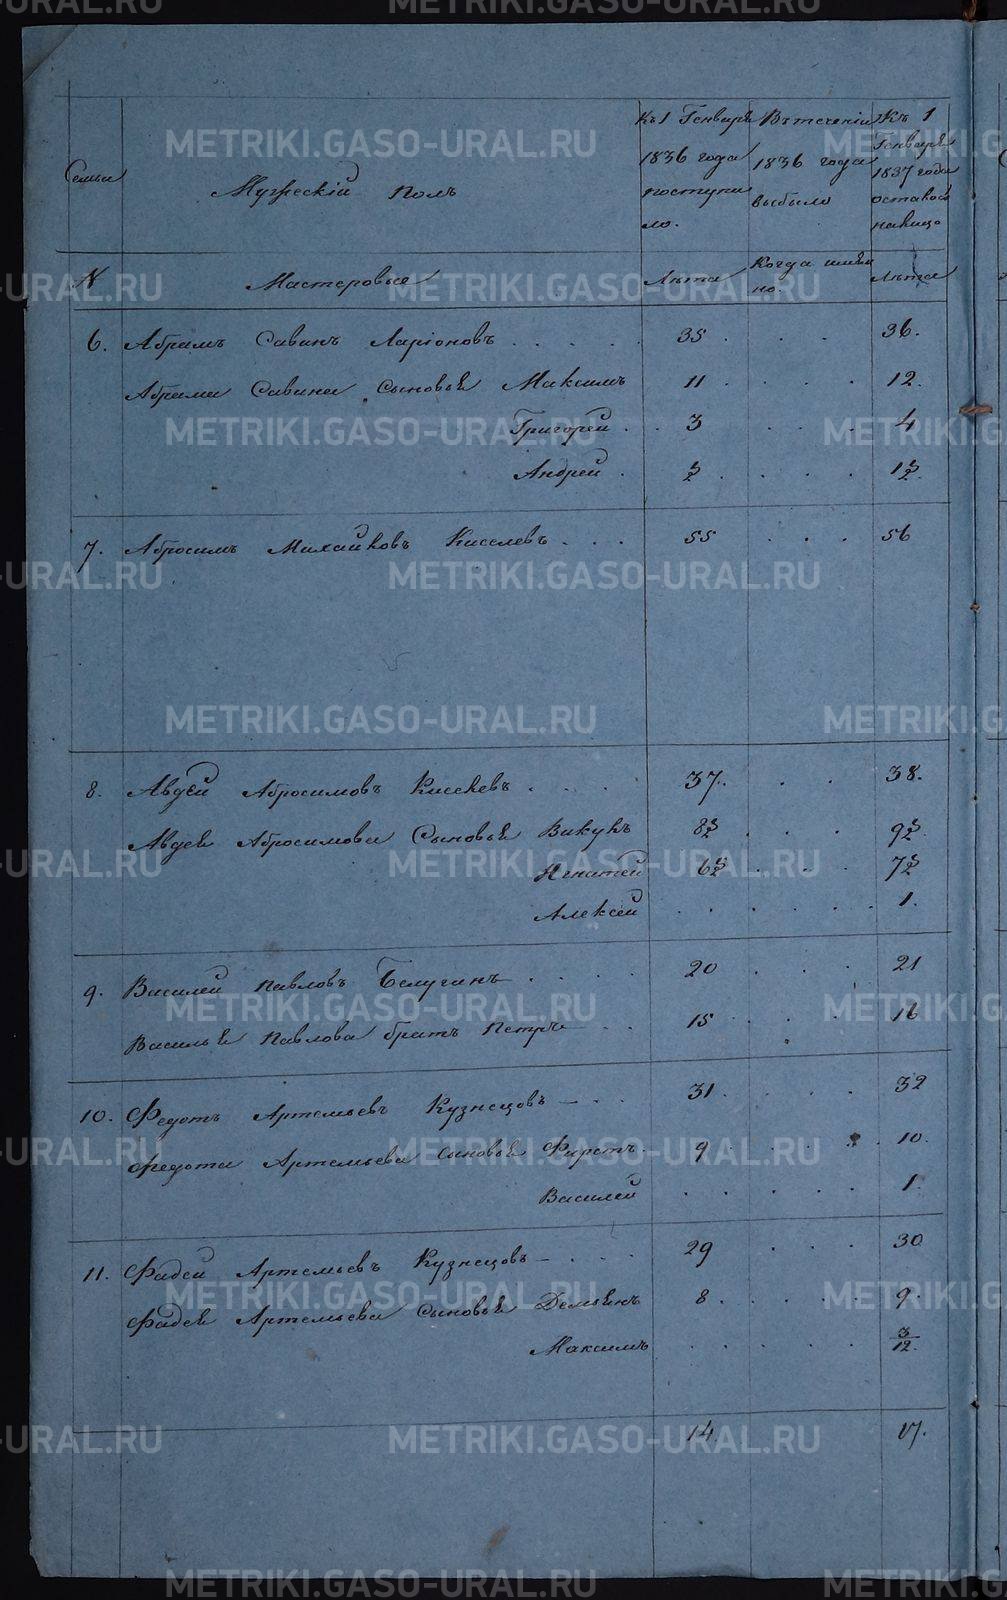 Семьи
Мужескій полъ
Къ 1 Генваря 1836 года поступило.
Въ теченіи 1836 года выбыло
Къ 1 Генваря 1837 года на лицо
N
Мастеровые
Лѣта
Когда имянно.
Лѣта
6. Абрамъ Савинъ Ларіоновъ . . . . . 35 . . . 36.
Абрама Савина Сыновья Максимъ 11 . . . 12.
Григорей . . 3 . . . 4
Андрей . . . . .
7. Абросимъ Михайловъ Киселевъ . . . 55 . . . 56
8. Авдей Абросимовъ Киселевъ . . . . 37. . . 38.
Авдея Абросимова Сыновья Викулъ
Алексей . . . . . . 1.
9. Василей Павловъ Белугинъ . . . . 20 . . . 21
Василья Павлова братъ Петръ . . 15 . . . 16
10. Федотъ Артемьевъ Кузнецовъ — . . 31. . . . 32
Федота Артемьева сыновья Фирстъ 9 . . . 10.
Василей . . . . . . 1.
11. Фадей Артемьевъ Кузнецовъ — . . . 29 . . . 30
Фадея Артемьева Сыновья Демьянъ 8 . . . . 9.
Максимъ . . . . . 3/12.
14. 17.
METRIKI.GASO-URAL.RU